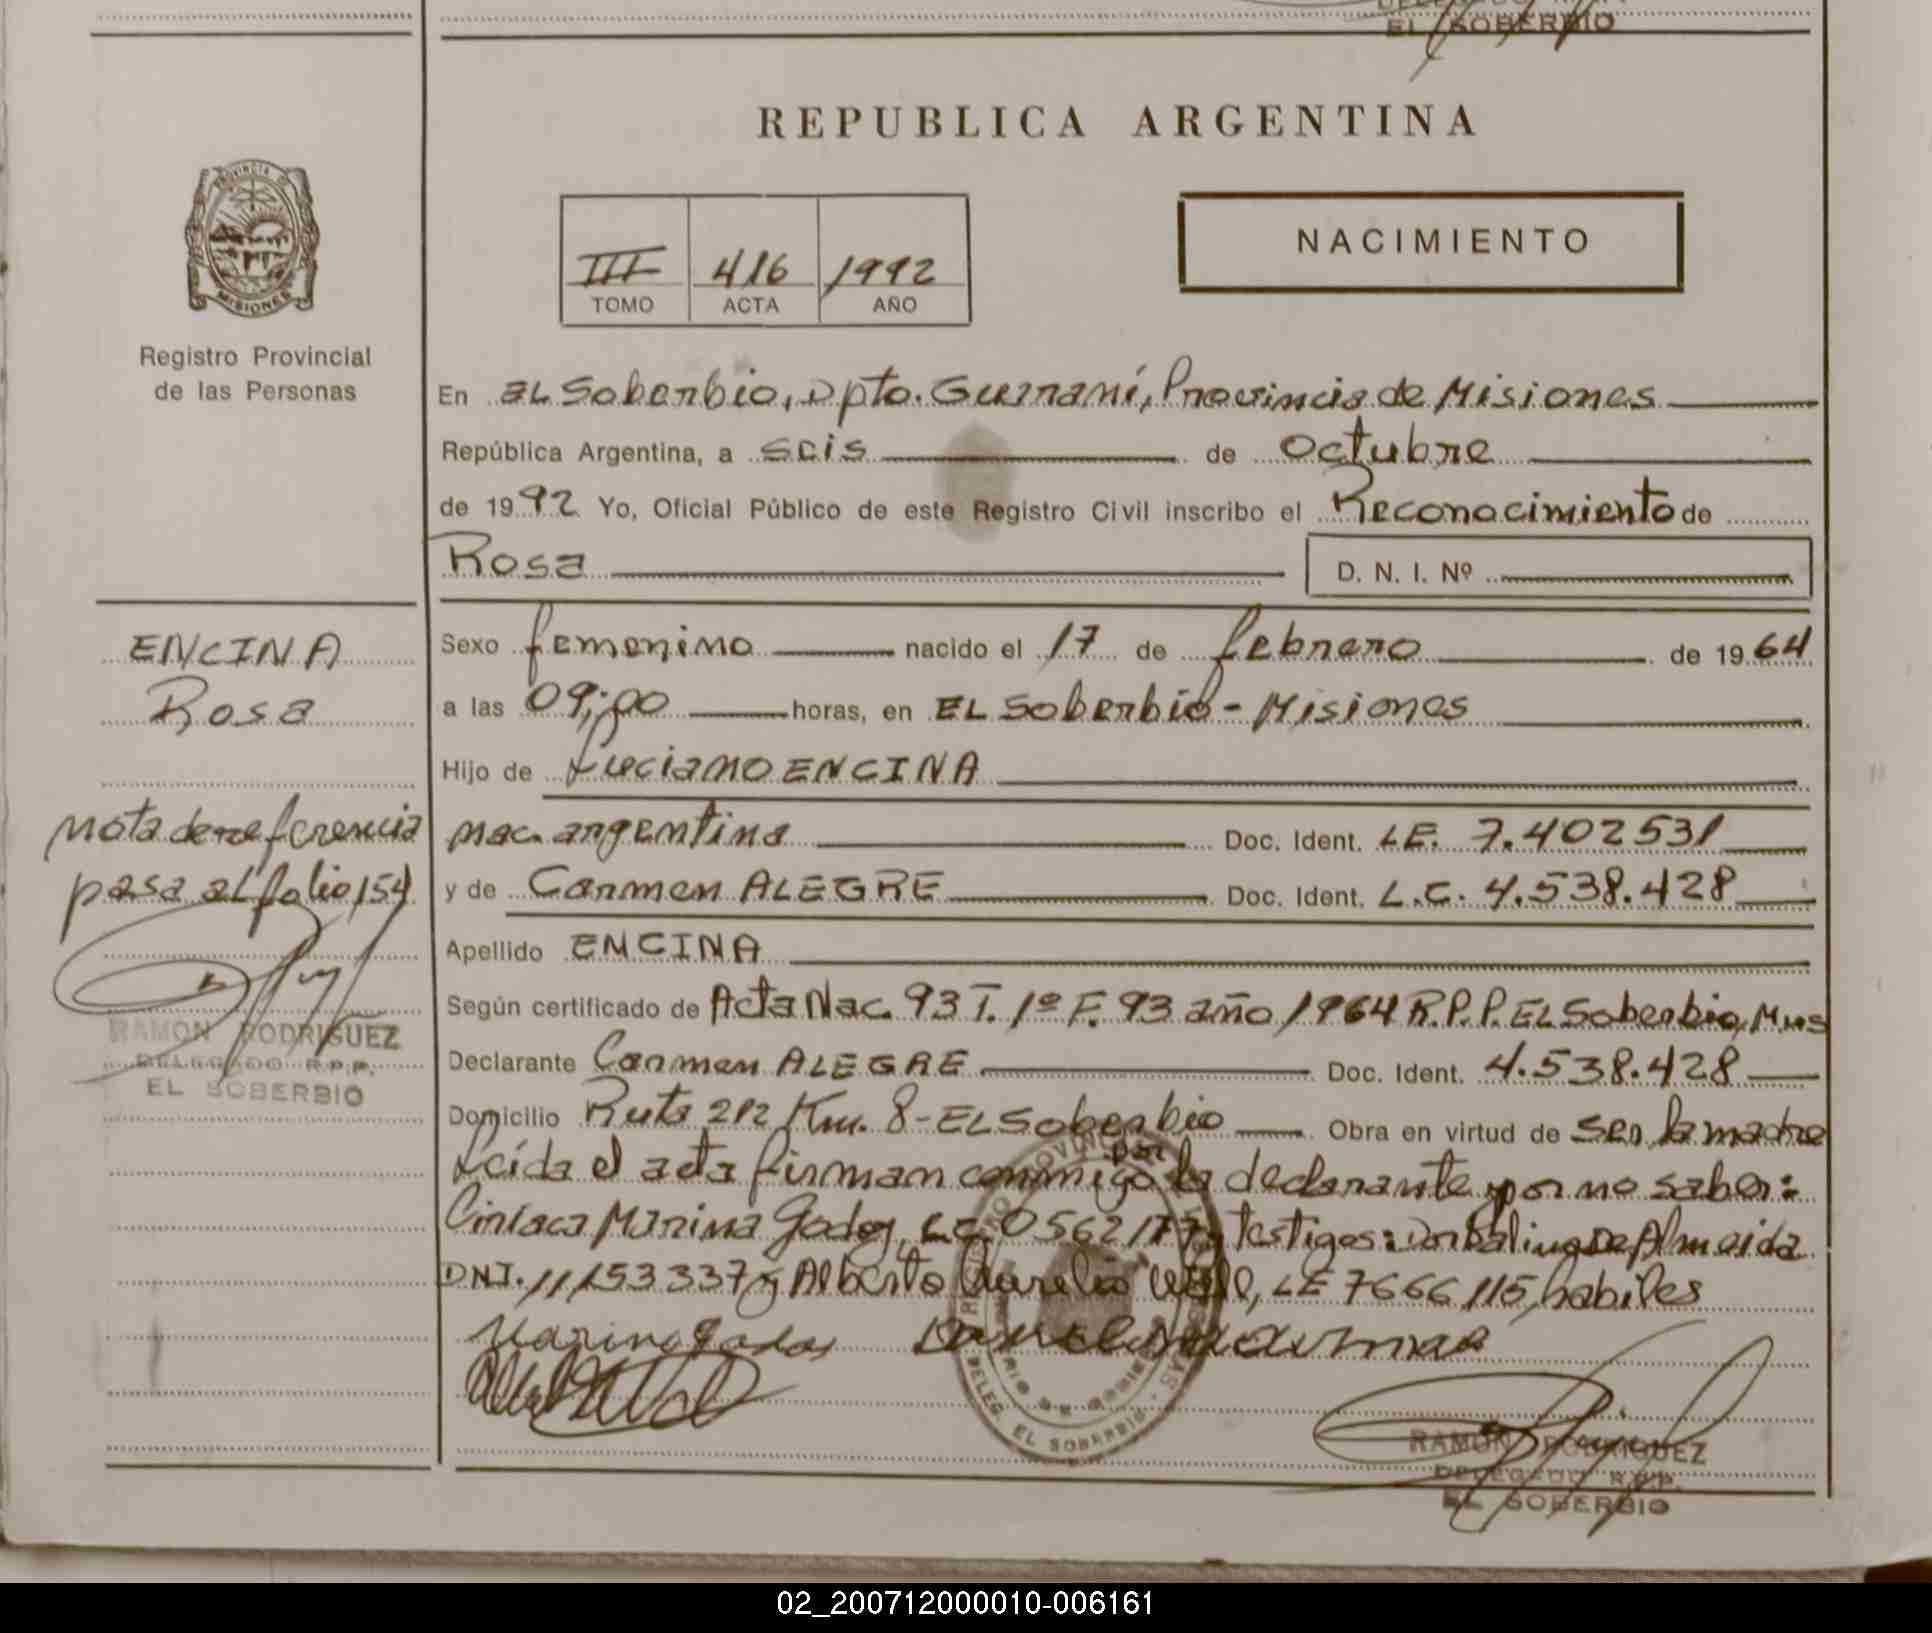 EL SOBERBIO
REPUBLICA ARGENTINA
PROVINCIA DE
MISIONES
Registro Provincial
de las Personas
III 416 1992
TOMO ACTA AÑO
NACIMIENTO
En EL Soberbio, Dpto. Guaraní, Provincia de Misiones
República Argentina, a seis de octubre
de 1992 Yo, Oficial Público de este Registro Civil inscribo el Reconocimiento de
Rosa D. N. I. Nº
ENCINA
Rosa
Nota de referencia
pasa al folio 154
RAMON RODRIGUEZ
DELEGADO R.P.P.
EL SOBERBIO
Sexo femenino nacido el 17 de febrero de 1964
a las 09;00 horas, en EL Soberbio - Misiones
Hijo de Luciano ENCINA
nac. argentina Doc. Ident. LE. 7.402531
y de Carmen ALEGRE Doc. Ident. L.C. 4.538.428
Apellido ENCINA
Según certificado de Acta Nac. 93 T. 1º F. 93 año 1964 R.P.P. EL Soberbio, Mnes
Declarante Carmen ALEGRE Doc. Ident. 4.538.428
Domicilio Ruta 212 Km. 8 - EL Soberbio Obra en virtud de ser la madre
Leída el acta firman conmigo por la declarante por no saber:
Ciriaca Marina Godoy, L.C. 0562177, testigos: Dorbalino De Almeida
DNI. 11153337 y Alberto Aurelio LE 7666115, habiles
Marina Godoy
DELEG. EL SOBERBIO
RAMON RODRIGUEZ
DELEGADO R.P.P.
EL SOBERBIO
02_200712000010-006161